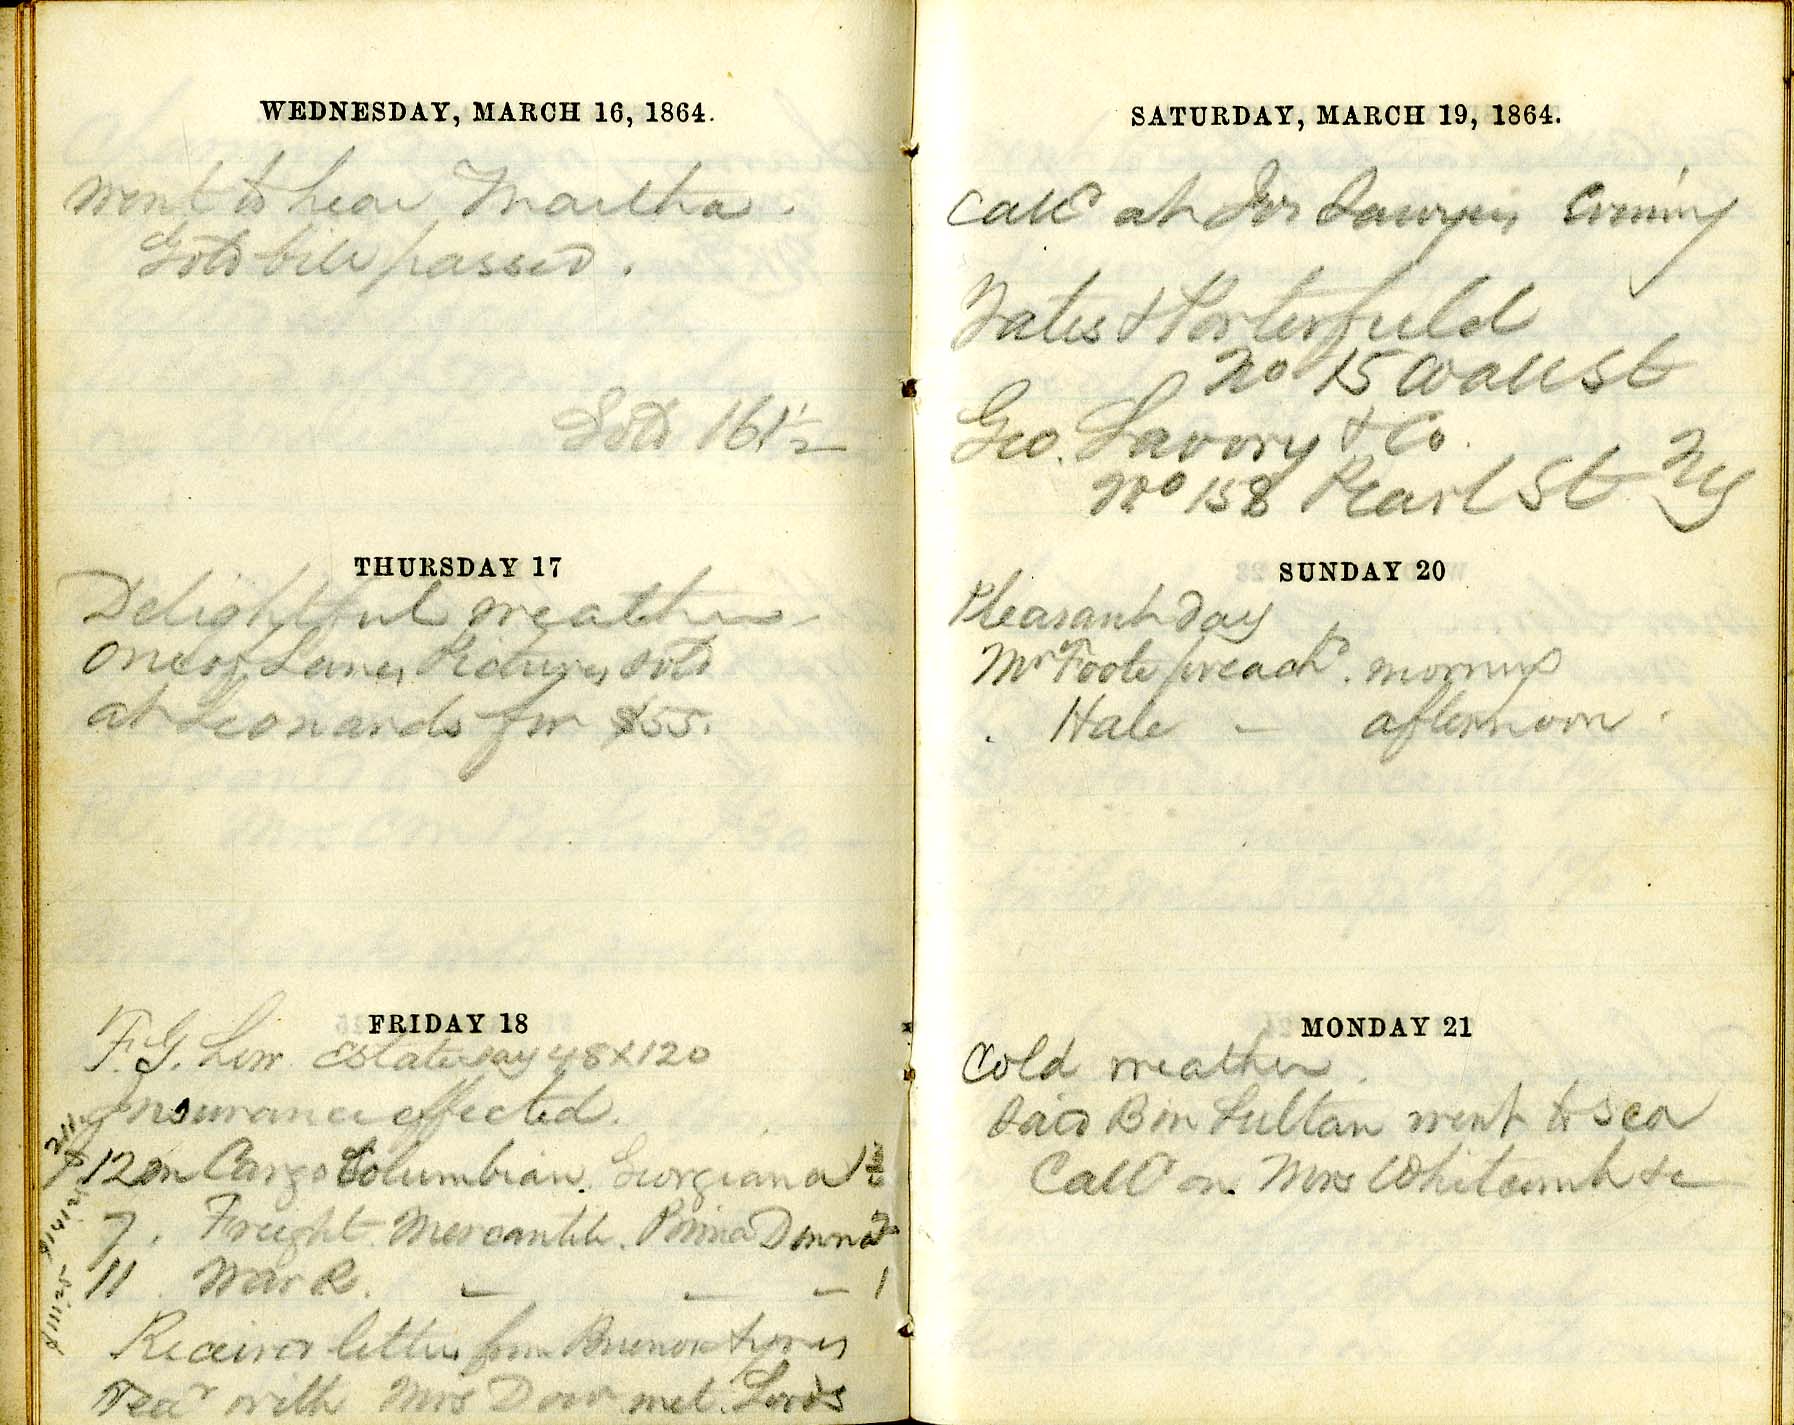 WEDNESDAY, MARCH 16, 1864.
Went to hear Martha.
Gold bill passed.
Gold 161 1/2
THURSDAY 17
Delightful weather
One of Lanes Pictures sold
at Leonards for $55.
FRIDAY 18
F. G. Low estate say 48 x 120
Insurance effected.
12 on Cargo Columbian. Georgiana
7. Freight Mercantile. Prima Donna
11. War R. — — — 1
Received letters from Buenos Ayres
Tea with Mrs Dow met Lords
SATURDAY, MARCH 19, 1864.
Calld at Sawyers Evening
Yates & Porterfield
No 15 Wall St
Geo. Savory & Co.
No 158 Pearl St NY
SUNDAY 20
Pleasant day
Mr Foote preachd. morning
. Hale — afternoon.
MONDAY 21
Cold weather.
Said Bin Sultan went to sea
Calld on Mrs Whitcomb &c